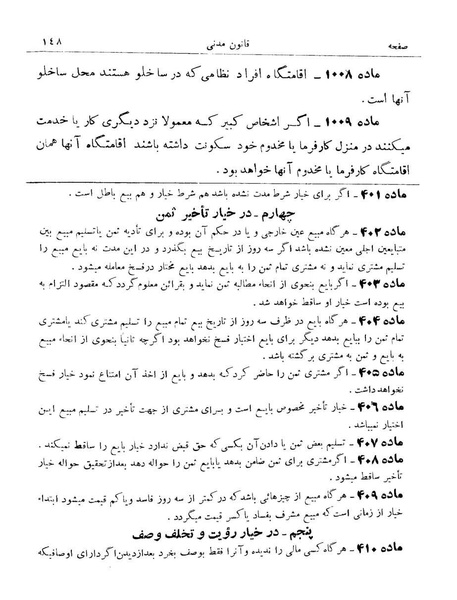 صفحه قانون مدنی ۱۴۸
ماده ۱۰۰۸ ـ اقامتگاه افراد نظامی که در ساخلو هستند محل ساخلو
آنها است.
ماده ۱۰۰۹ ـ اگر اشخاص کبیر که معمولا نزد دیگری کار یا خدمت
میکنند در منزل کارفرما یا مخدوم خود سکونت داشته باشند اقامتگاه آنها همان
اقامتگاه کارفرما یا مخدوم آنها خواهد بود.
ماده ۴۰۱ ـ اگر برای خیار شرط مدت نشده باشد هم شرط خیار و هم بیع باطل است.
چهارم ـ در خیار تأخیر ثمن
ماده ۴۰۲ ـ هرگاه مبیع عین خارجی و یا در حکم آن بوده و برای تأدیه ثمن یاتسلیم مبیع بین
متبایعین اجلی معین نشده باشد اگر سه روز از تاریخ بیع بگذرد و در این مدت نه بایع مبیع را
تسلیم مشتری نماید و نه مشتری تمام ثمن را به بایع بدهد بایع مختار درفسخ معامله میشود.
ماده ۴۰۳ ـ اگربایع بنحوی از انحاء مطالبه ثمن نماید و بقرائن معلوم گرددکه مقصود التزام به
بیع بوده است خیار او ساقط خواهد شد.
ماده ۴۰۴ ـ هرگاه بایع در ظرف سه روز از تاریخ بیع تمام مبیع را تسلیم مشتری کند یامشتری
تمام ثمن را ببایع بدهد دیگر برای بایع اختیار فسخ نخواهد بود اگرچه ثانیا بنحوی از انحاء مبیع
به بایع و ثمن به مشتری برگشته باشد.
ماده ۴۰۵ ـ اگر مشتری ثمن را حاضر کردکه بدهد و بایع از اخذ آن امتناع نمود خیار فسخ
نخواهدداشت.
ماده ۴۰۶ ـ خیار تأخیر مخصوص بایع است و برای مشتری از جهت تأخیر در تسلیم مبیع این
اختیار نمیباشد.
ماده ۴۰۷ ـ تسلیم بعض ثمن یا دادن آن بکسی که حق قبض ندارد خیار بایع را ساقط نمیکند.
ماده ۴۰۸ ـ اگرمشتری برای ثمن ضامن بدهد یابایع ثمن را حواله دهد بعدازتحقیق حواله خیار
تأخیر ساقط میشود.
ماده ۴۰۹ ـ هرگاه مبیع از چیزهائی باشدکه درکمتر از سه روز فاسد ویاکم قیمت میشود ابتداء
خیار از زمانی است که مبیع مشرف بفساد یاکسر قیمت میگردد.
پنجم ـ در خیار رؤیت و تخلف وصف
ماده ۴۱۰ ـ هرگاه کسی مالی را ندیده وآنرا فقط بوصف بخرد بعدازدیدن اگردارای اوصافیکه